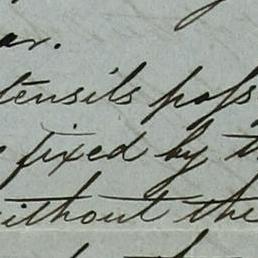 ar.
tensils poss
fixed by t
ithout the